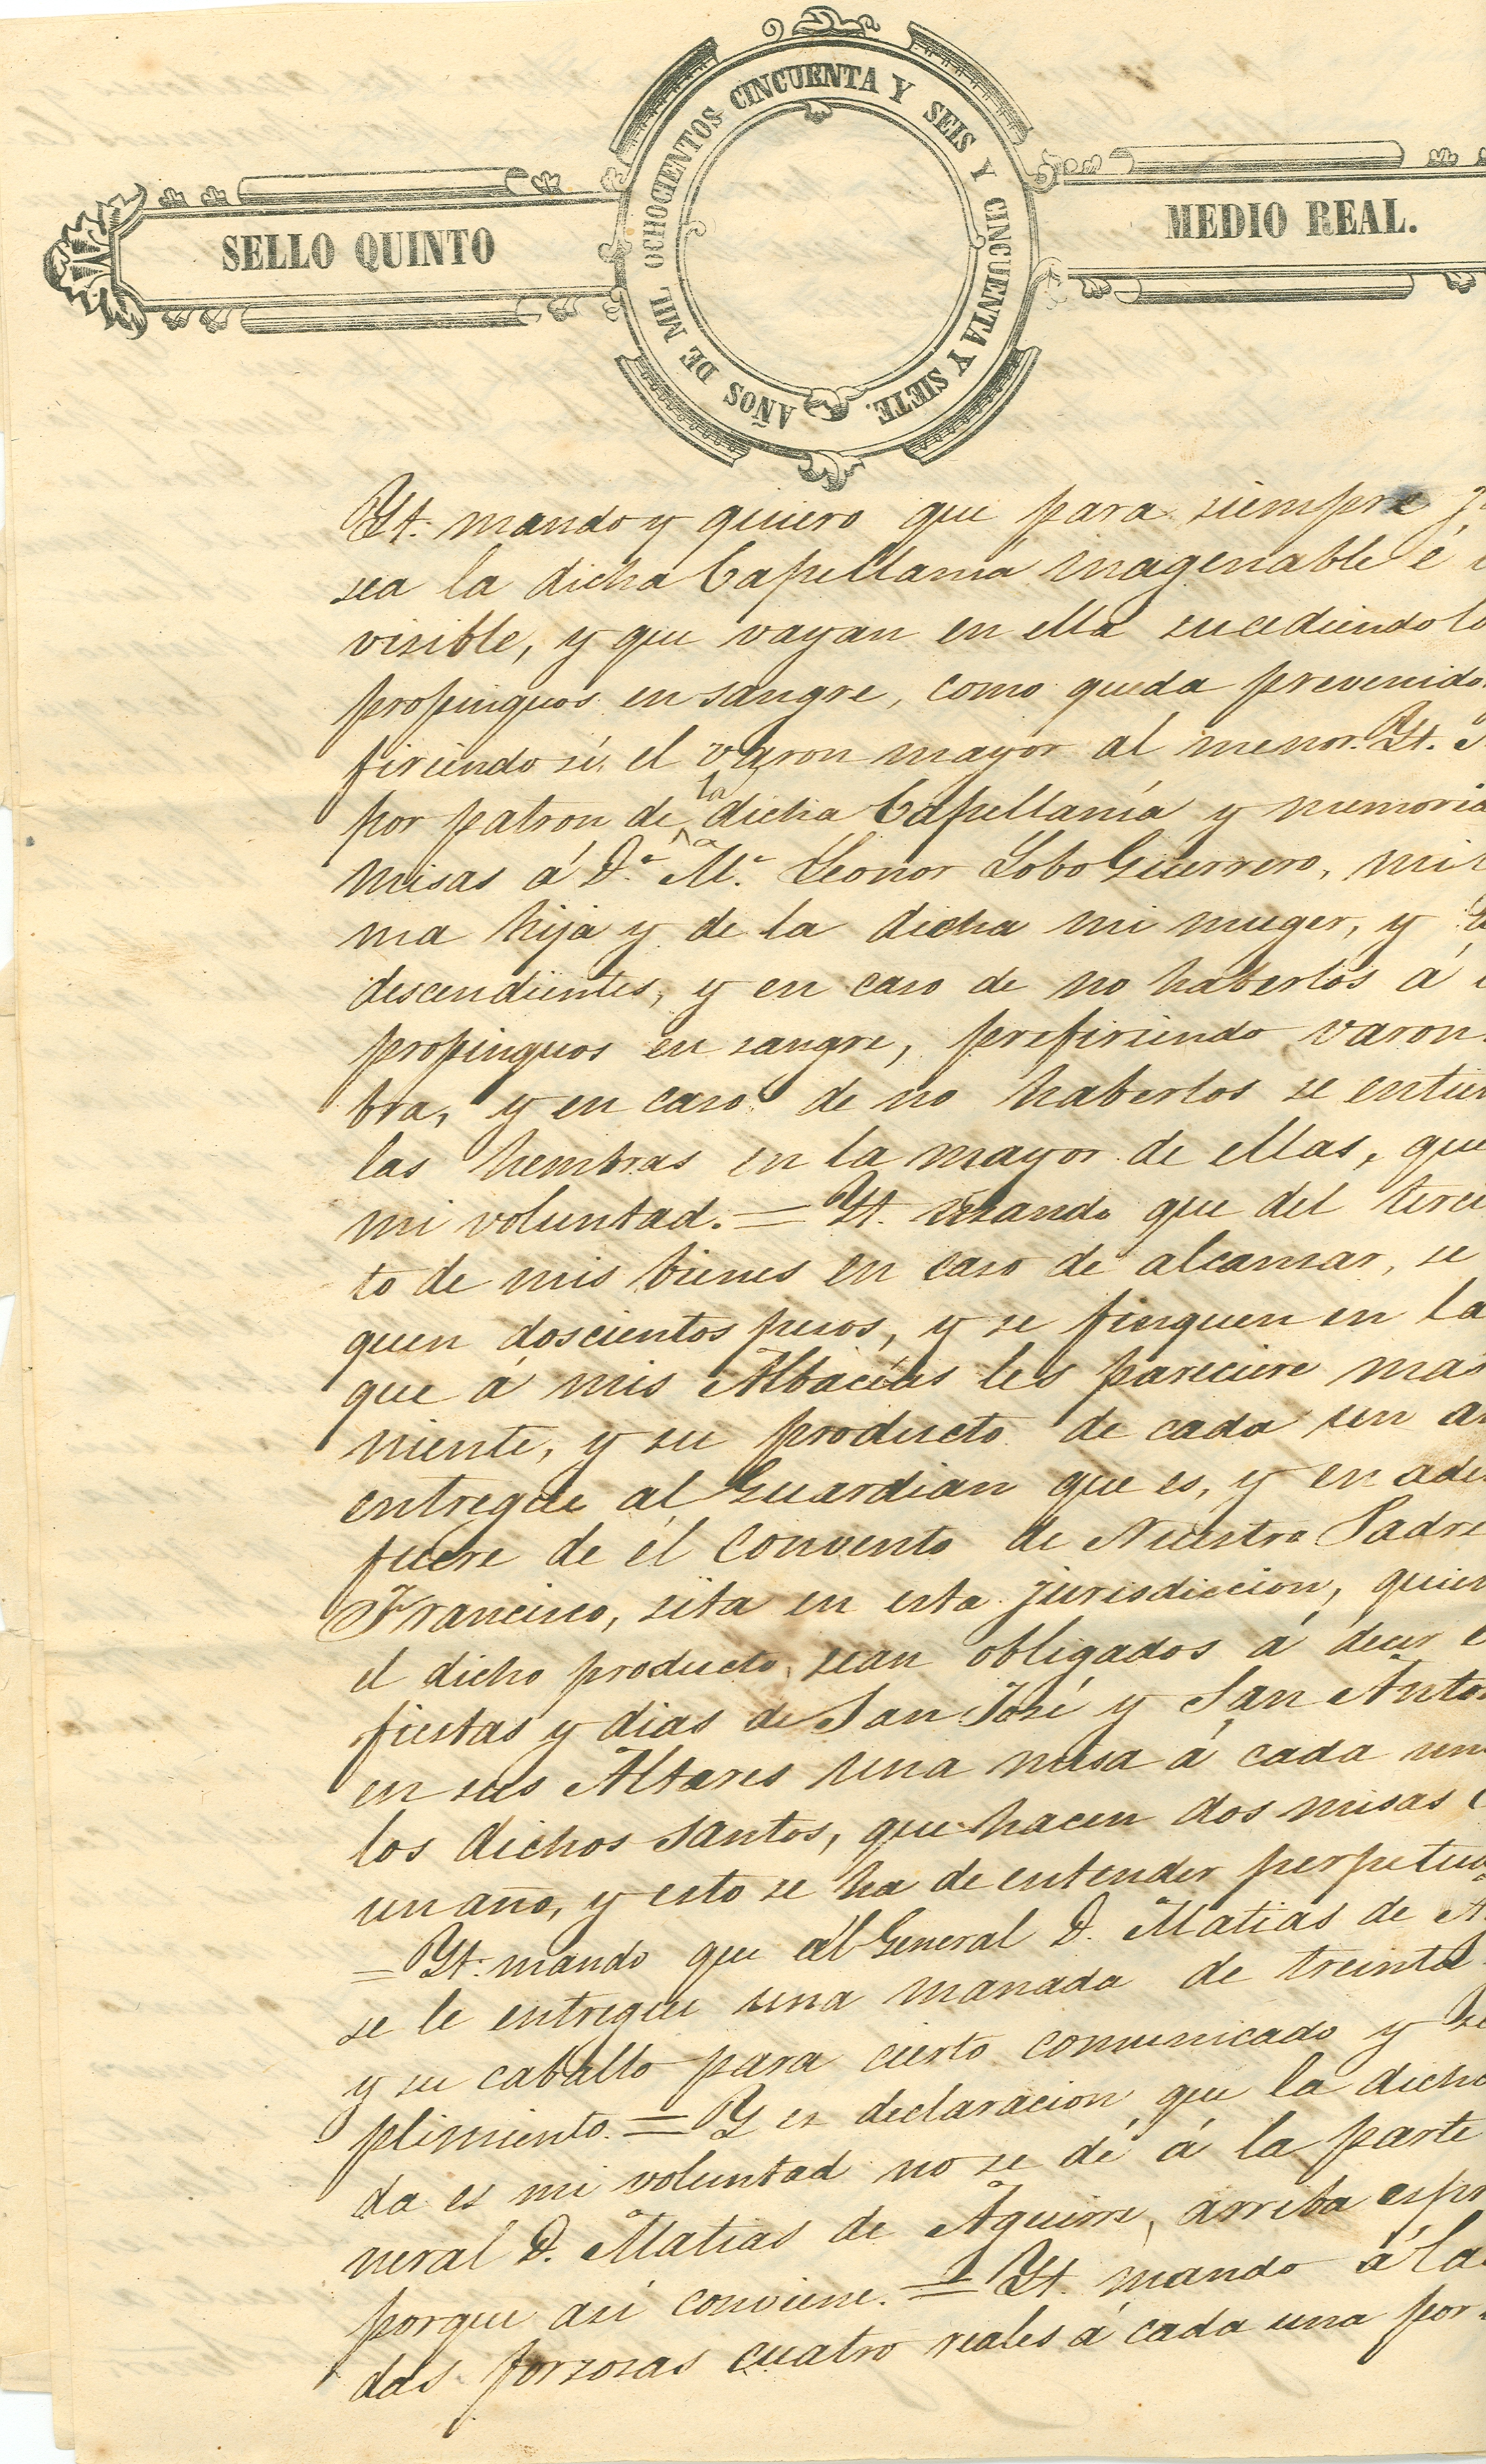 SELLO QUINTO
AÑOS DE MIL OCHOCIENTOS CINCUENTA Y SEIS Y CINCUENTA Y SIETE.
MEDIO REAL.
Yt. mando y quiero que para siempre
sea la dicha Capellanía inagenable é
visible, y que vayan en ella sucediendo lo
propinquos en sangre, como queda prevenido
firiendo sí el varon mayor al menor. Yt.
por patron de la dicha Capellanía y memoria
misas á D.ª M.ª Leonor Lobo Guerrero, mi
ma hija y de la dicha mi muger, y
descendientes, y en caso de no haberlos á
propinquos en sangre, prefiriendo varon
bra, y en caso de no haberlos se entien
las hembras en la mayor de ellas, que
mi voluntad. = Yt. mando que del terci
to de mis bienes en caso de alcansar, se
quen doscientos pesos, y se finquen en la
que á mis Albaceas les pareciere mas
niente, y su producto de cada un a
entregue al Guardian que es, y en ade
fuere de él Convento de Nuestro Padre
Francisco, sita en esta jurisdiccion, quien
el dicho producto, sean obligados á decir e
fiestas y dias de San José y San Anto
en sus Altares una misa á cada un
los dichos santos, que hacen dos misas
un año, y esto se ha de entender perpetua
= Yt. mando que al General D. Matias de A
se le entregue una manada de treinta
y su caballo para cierto comunicado y
plimiento. = Y es declaracion que la dicha
da es mi voluntad no se dé á la parte
neral D. Matias de Aguirre, arriba espr
porque así conviene. = Yt. mando á la
das forzosas cuatro reales á cada una por